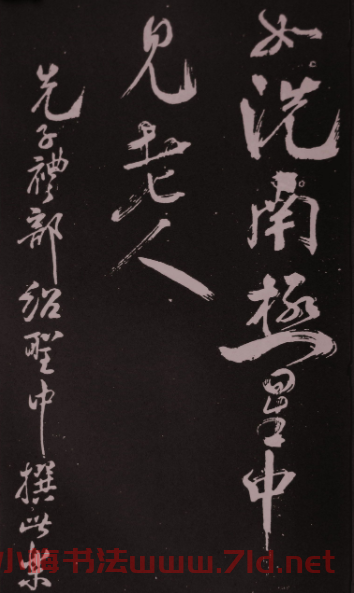 如洗南極星中
見老人
先子禮部紹聖中撰此樂
书法www.7ld.net